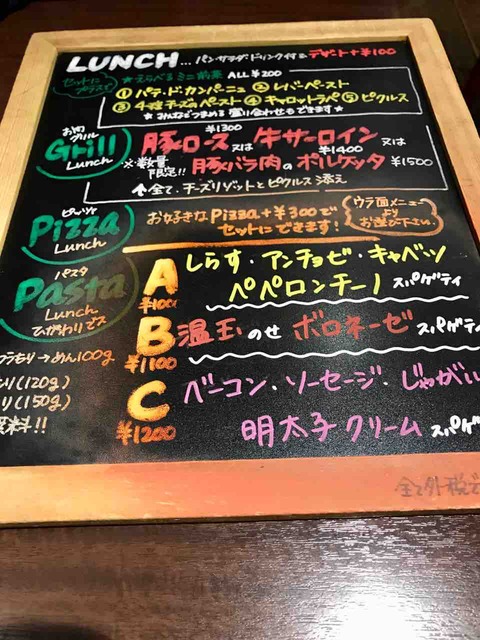 LUNCH... パン・サラダ・ドリンク付 デザート+¥100
セットにプラスで
★えらべるミニ前菜 ALL ¥200
①パテ・ド・カンパーニュ ②レバーペースト
③4種チーズのペースト ④キャロットラペ ⑤ピクルス
★みんなでつまめる盛り合わせもできます★
お肉グリル
Grill
Lunch
豚ロース ¥1300 又は 牛サーロイン ¥1400 又は
※数量限定!! 豚バラ肉のポルケッタ ¥1500
↑全て、チーズリゾットとピクルス添え
ピッツァ
Pizza
Lunch
お好きなPizza+¥300で
セットにできます!
ウラ面メニューよりお選び下さい
パスタ
Pasta
Lunch
ひがわりです
A しらす・アンチョビ・キャベツ
ペペロンチーノ スパゲティ
B 温玉のせ ボロネーゼ スパゲティ
¥1100
めん100g
(120g)
(150g)
C ベーコン・ソーセージ・じゃがい
¥1200
明太子クリーム スパゲ
全て外税で